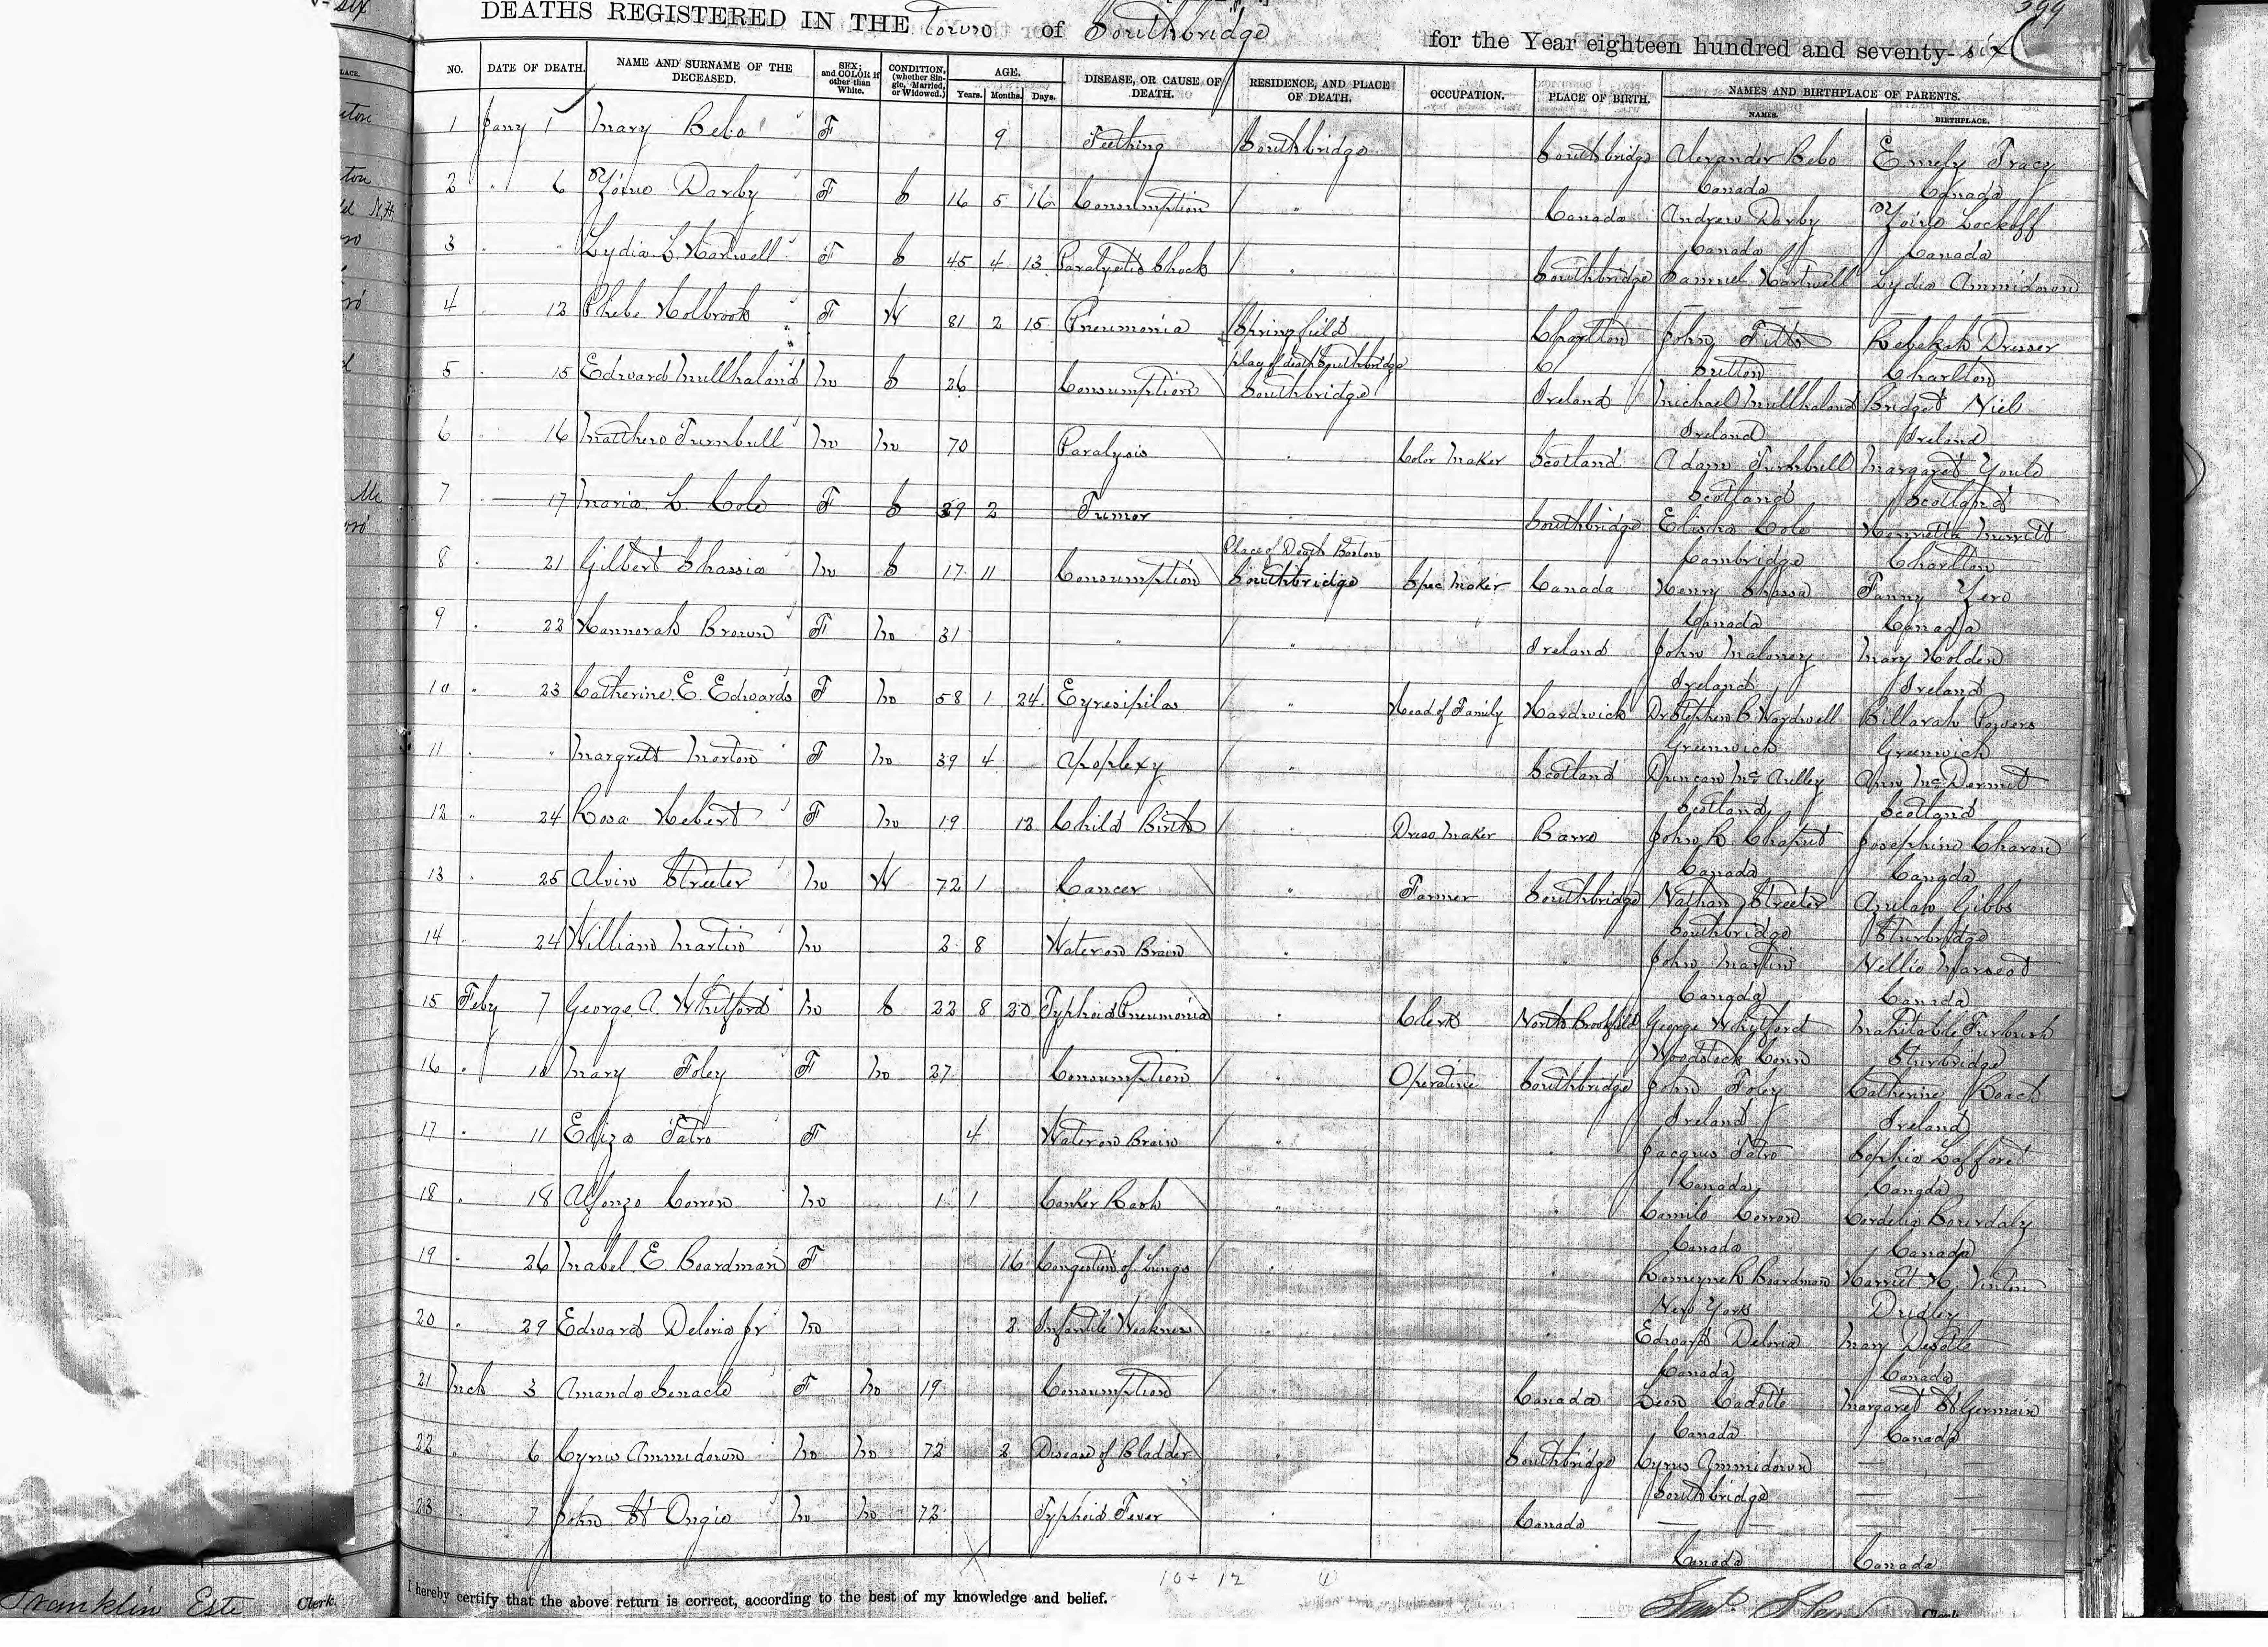 DEATHS REGISTERED IN THE Town of Southbridge for the Year eighteen hundred and seventy-six
NO. DATE OF DEATH. NAME AND SURNAME OF THE DECEASED. SEX; and COLOR if other than White. CONDITION, (whether Single, Married, or Widowed.) AGE. Years. Months. Days. DISEASE, OR CAUSE OF DEATH. RESIDENCE, AND PLACE OF DEATH. OCCUPATION. PLACE OF BIRTH. NAMES AND BIRTHPLACE OF PARENTS. NAMES. BIRTHPLACE.
1 Jany 1 Mary Bebo F 9 Teething Southbridge Southbridge Alexander Bebo Emely Tracy
Canada Canada
2 " 6 Darby F S 16 5 16 Consumption " Canada Andrew Darby Lockoff
Canada Canada
3 " " Lydia L. Hartwell F S 45 4 13 Paralytic Shock " Southbridge Samuel Hartwell Lydia Ammidown
— —
4 " 13 Phebe Holbrook F W 81 2 15 Pneumonia Springfield Charlton John Fitts Rebekah Dresser
place of death Southbridge Sutton Charlton
5 " 15 Edward Mullhaland M S 26 Consumption Southbridge Ireland Michael Mullhaland Bridget Niel
Ireland Ireland
6 " 16 Matthew Turnbull M M 70 Paralysis " Color Maker Scotland Adam Turnbull Margaret Youle
Scotland Scotland
7 " 17 Maria L. Cole F S 39 2 Tumor " Southbridge Elisha Cole Henrietta Merritt
Cambridge Charlton
Place of Death Boston
8 " 21 Gilbert Shassia M S 17 11 Consumption Southbridge Spec Maker Canada Henry Shassa Fanny Yero
Canada Canada
9 " 22 Hannorah Brown F M 31 " " Ireland John Maloney Mary Holden
Ireland Ireland
10 " 23 Catherine E. Edwards F M 58 1 24 Eyresipilas " Head of Family Hardwick Dr Stephen B. Wardwell Billarah Powers
Greenwich Greenwich
11 " " Margrett Morton F M 39 4 Apoplexy " Scotland Duncan McAulley Ann McDermit
Scotland Scotland
12 " 24 Rosa Hebert F M 19 12 Child Birth " Dress Maker Barre John R. Chaput Josephine Charon
Canada Canada
13 " 25 Alvin Streeter M W 72 1 Cancer " Farmer Southbridge Nathan Streeter Gibbs
Southbridge Sturbridge
14 " 24 William Martin M 2 8 Water on Brain " " John Martin Nellie
Canada Canada
15 Feby 7 George A. Whitford M S 22 8 20 Typhoid Pneumonia " Clerk North Brookfield George Whitford Mahitable Furbush
Woodstock Conn Sturbridge
16 " 10 Mary Foley F M 27 Consumption " Operative Southbridge John Foley Catherine Roach
Ireland Ireland
17 " 11 Eliza Tatro F 4 Water on Brain " " Jacques Tatro Sophia Lafford
Canada Canada
18 " 18 Alfonzo Corron M 1 1 Canker Rash " " Camile Corron Cordelia Bourdaly
Canada Canada
19 " 26 Mabel E. Boardman F 16 Congestion of Lungs " " Romeyne R Boardman Harriet H. Vinton
New York Dudley
20 " 29 Edward Deloria Jr M 2 Infantile Weakness " " Edward Deloria Mary Desotte
Canada Canada
21 Mch 3 Amanda Senacle F M 19 Consumption " Canada Leon Cadotte Margaret St Germain
Canada Canada
22 " 6 Cyrus Ammidown M M 72 2 Disease of Bladder " Southbridge Cyrus Ammidown —
Southbridge —
23 " 7 John St Ongie M M 72 Typhoid Fever " Canada — —
Canada Canada
10 + 12
I hereby certify that the above return is correct, according to the best of my knowledge and belief.
Franklin Este Clerk.